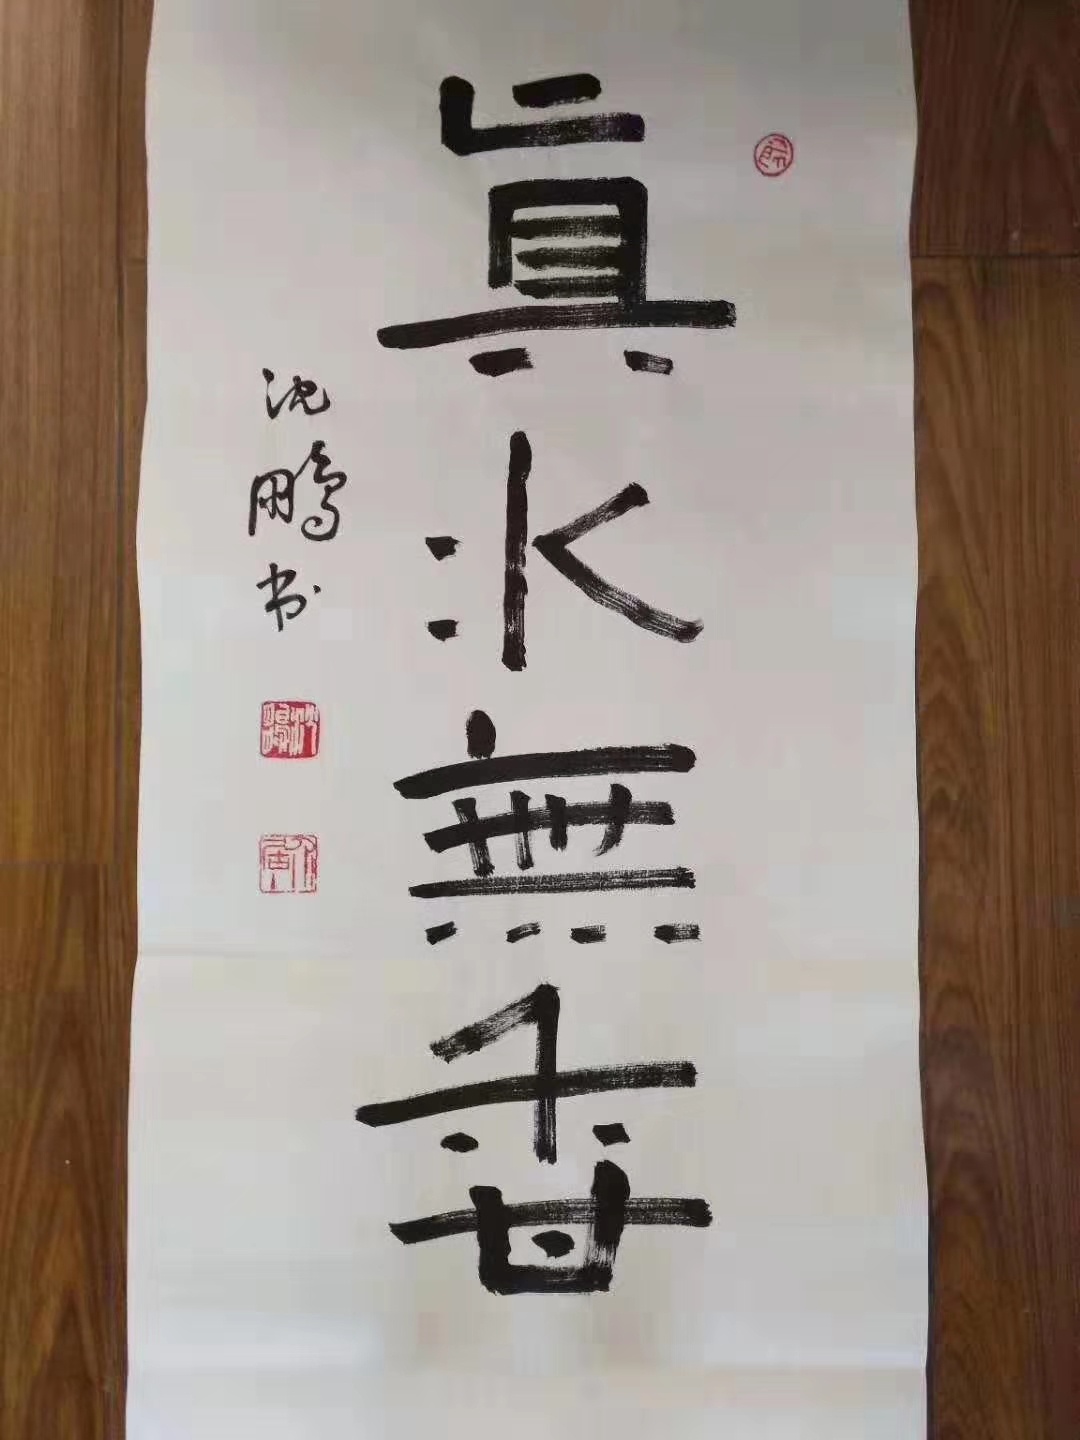 真水無香
沈鹏书